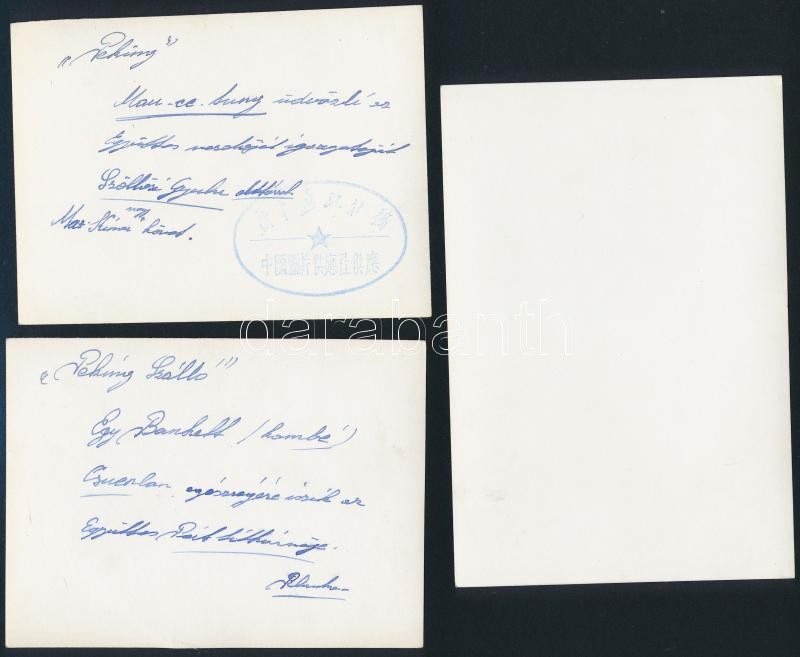 „Peking”
Mau-ce-tung üdvözli az
Együttes vezetőjét igazgatóját
Szöllősi Gyula elvtársat.
nagy
Maz-Kínai követ.
中國圖片供應社供應
darabanth
„Peking Szálló”
Egy Bankett (kambé)
Csuenlau egészségére iszik az
Együttes Párt titkárnője.